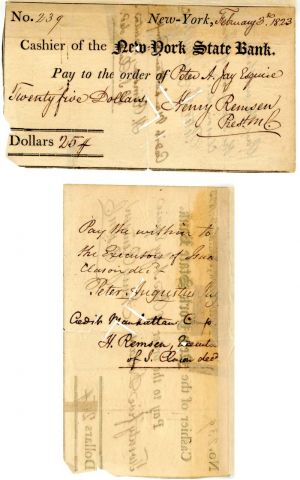 No. 239 New-York, February 3d. 1823
Cashier of the New-York State Bank.
Pay to the order of Peter A. Jay Esquire
Twenty five Dollars, Henry Remsen
Dollars 25 Prest M C
Pay the within to
the Executors of Isaac
Clason decd
Peter Augustus Jay
Credit Manhattan C
H. Remsen, Executor
of I. Clason decd